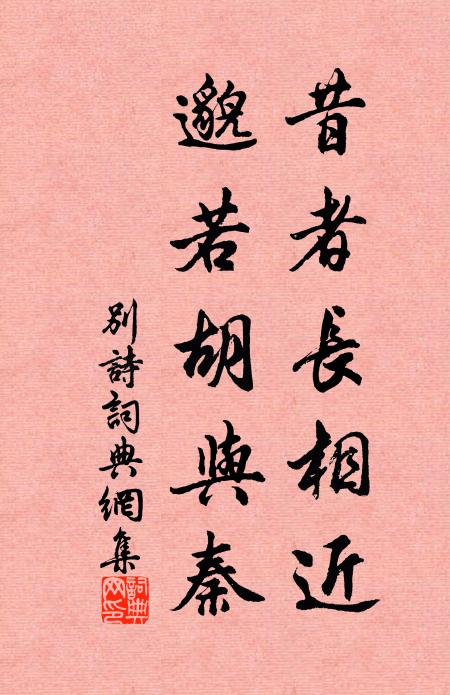 昔者長相近
邈若胡與秦
別詩詞典網集
詞典网印